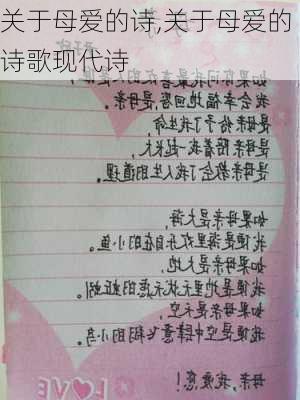 关于母爱的诗,关于母爱的
诗歌现代诗
如果你问我最喜欢的人是谁
我会幸福地回答,是母亲。
是母亲给予了我生命,
是母亲陪着我一起长大,
是母亲教会了我人生的道理。
如果母亲是大海,
我便是海里欢乐自在的小鱼。
如果母亲是大地,
我便是地里无忧无虑的蚯蚓。
如果母亲是天空,
我便是空中肆意飞翔的小鸟。
母亲,我爱您!
LOVE